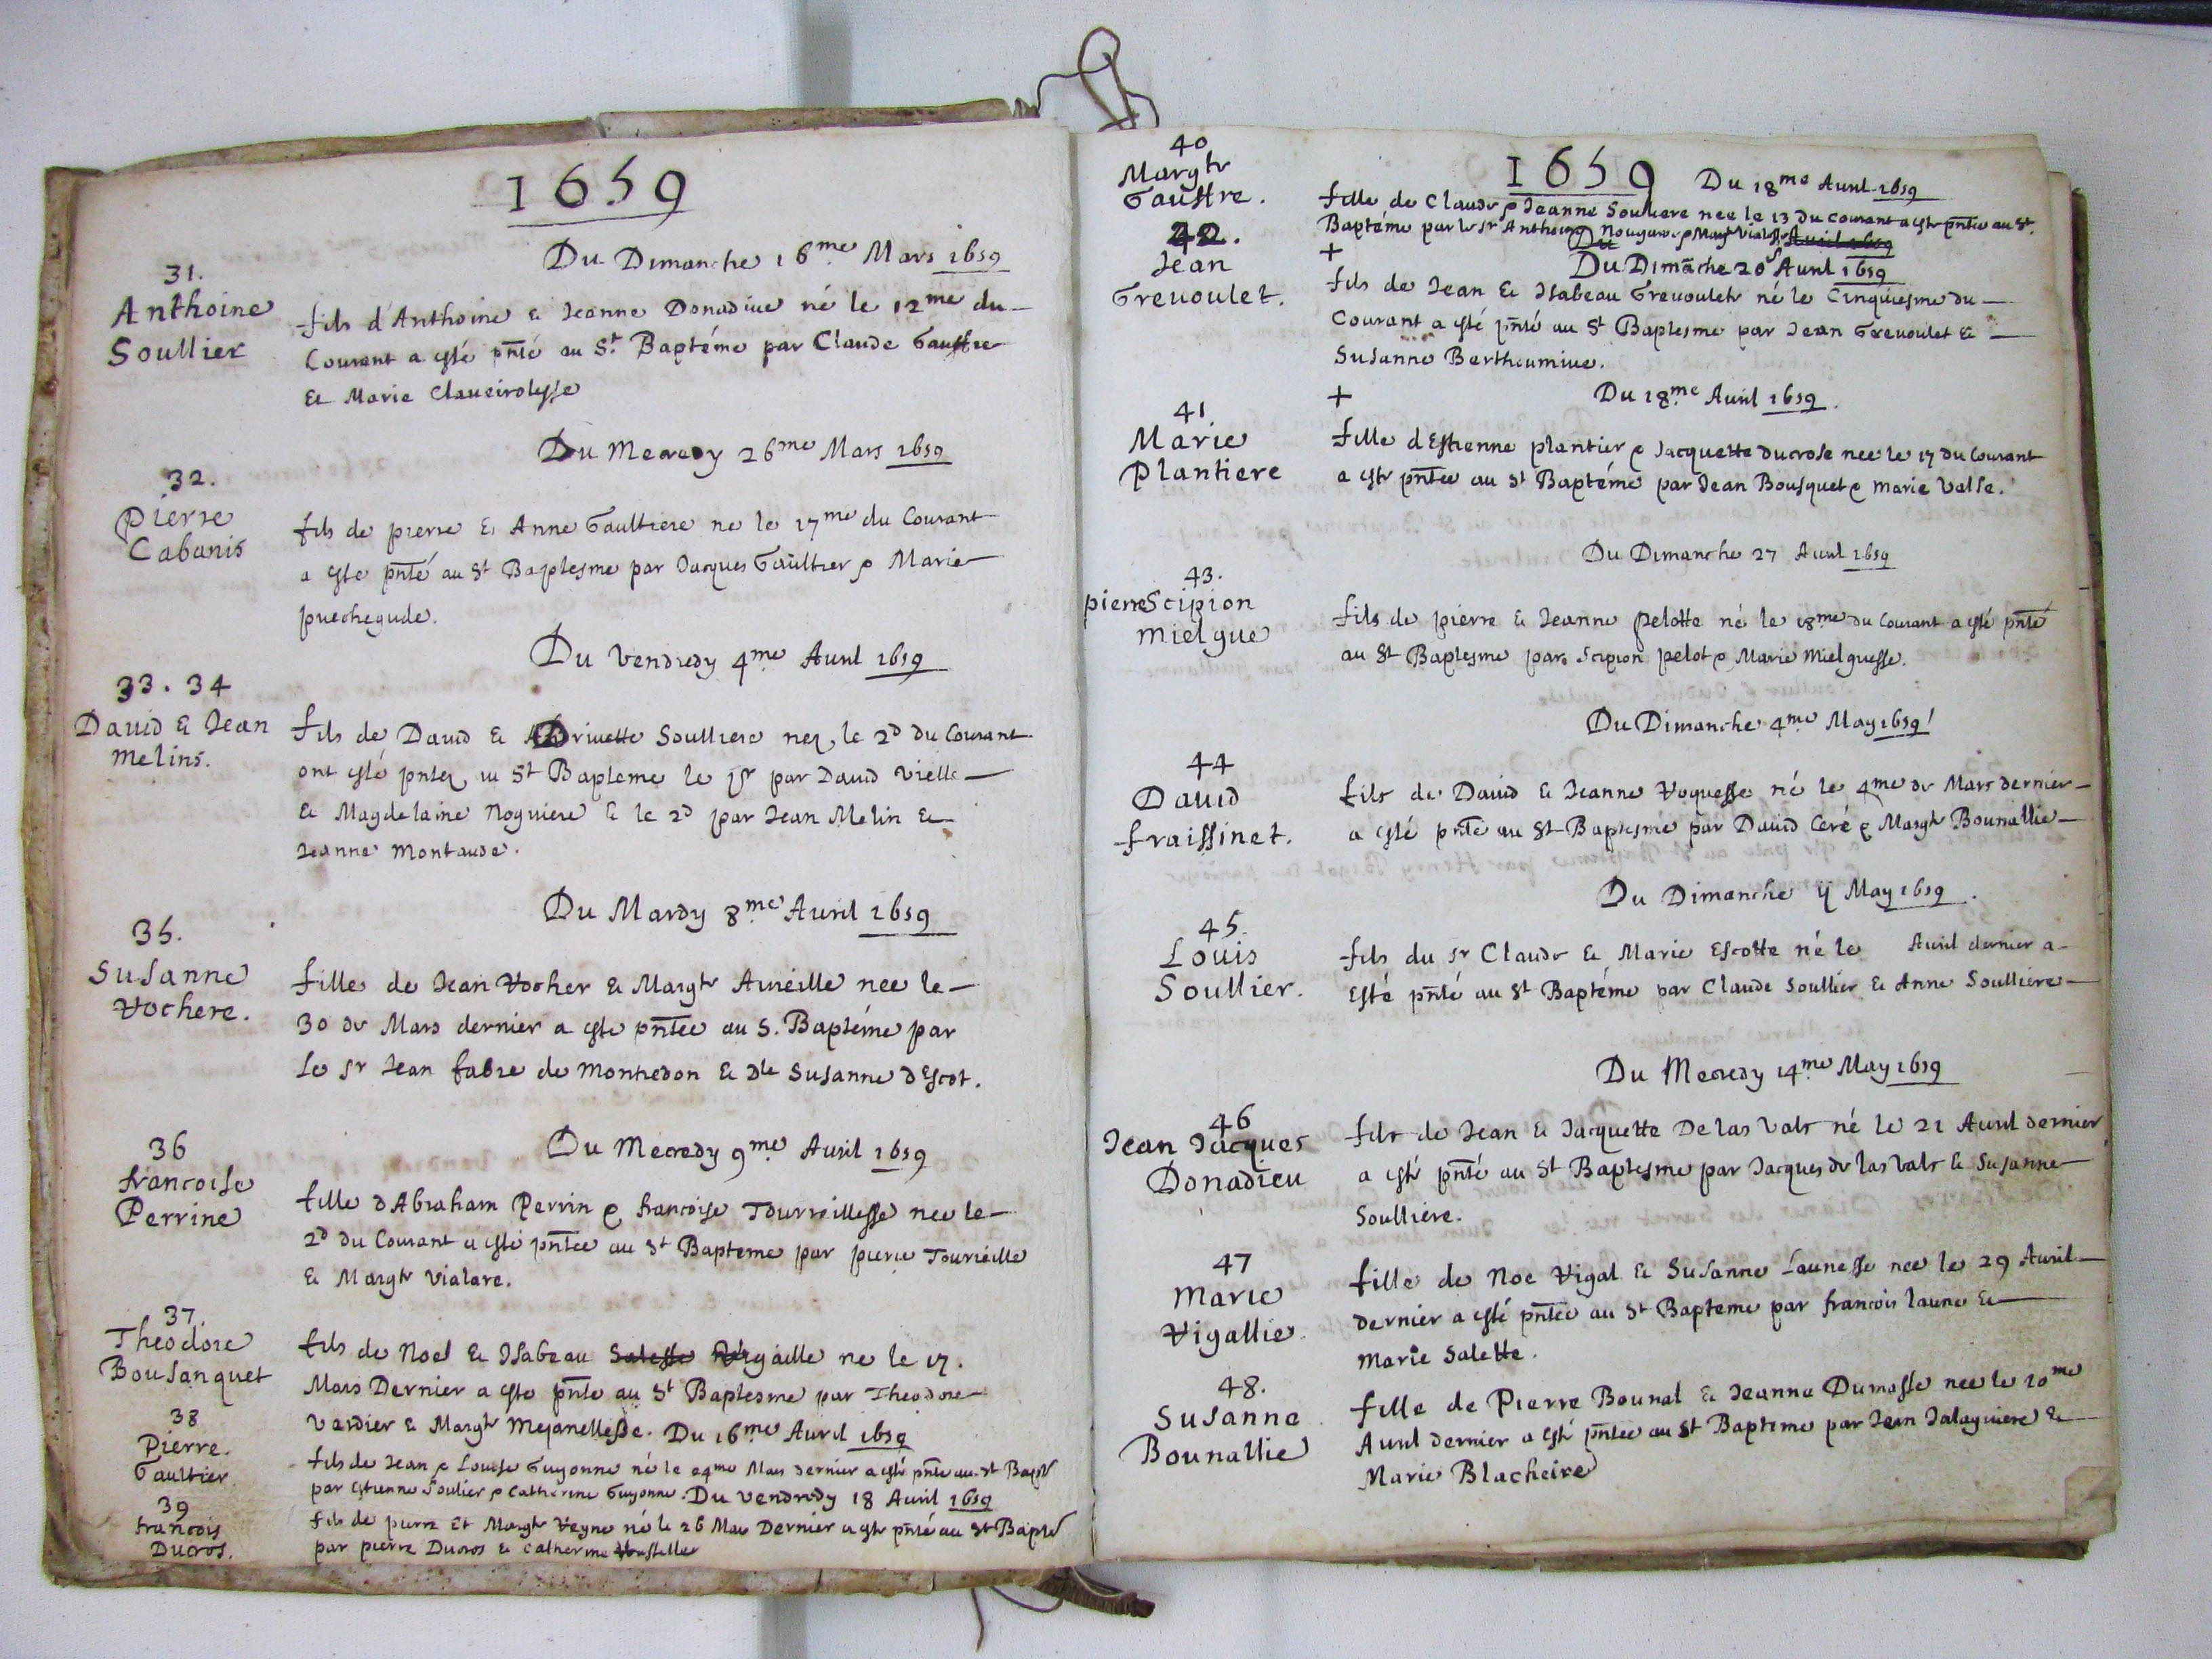 1659
Du Dimanche 16me Mars 1659
31.
Anthoine
Soullier
fils d'Anthoine & Jeanne Donadiue né le 12me du
Courant a esté pnté au St. Baptéme par Claude Gaustre
Et Marie Claueirolesse
Du Mecredy 26me Mars 1659
32.
Pierre
Cabanis
fils de pierre & Anne Gaultiere ne le 17me du Courant
a este pnté au St Baptesme par Jacques Gaultier & Marie
puechegude.
Du Vendredy 4me Auril 1659
33. 34
Dauid & Jean
melins.
fils de Dauid & Soulliere nez le 2d du Courant
ont esté pntez au St Bapteme le 1er par Dauid Vielle
& Magdelaine Noguiere & le 2d par Jean Melin &
Jeanne Montaude.
Du Mardy 8me Auril 1659
35.
Susanne
Vochere.
fille de Jean Vocher & Margte Aureille nee le
30 de Mars dernier a este pntée au S. Baptéme par
Le Sr Jean fabre de Montredon & Dle Susanne d'Escot.
Du Mecredy 9me Auril 1659
36
francoise
Perrine
fille d'Abraham Perrin & francoise Tourreillesse nee le
2d du Courant a esté pntee au St Bapteme par pierre Tourreille
& Margte Vialare.
37.
Theodore
Bousanquet
fils de Noel & Isabeau Salesse Vigaille ne le 17.
Mars Dernier a este pnte au St Baptesme par Theodore
Verdier & Margte Mejanellesse. Du 16me Auril 1659
38
Pierre.
Gaultier
fils de Jean & Louise Guyonne né le 24me Mars dernier a esté pnté au St Bapte
par Estienne Soulier & Catherine Guyonne. Du Vendredy 18 Auril 1659
39
francois
Ducros.
fils de pierre Et Margte Veyne né le 26 Mars Dernier a este pnté au St Bapte
par pierre Ducros & Catherine
40
Margte
Gaustre.
1659 Du 18me Auril 1659
fille de Claude & Jeanne Souliere nee le 13 du courant a este pntee au St.
Baptéme par le Sr Anthoine Nougarede & Margte Viale Auril 1659
42.
Jean
Greuoulet.
+
Du Dimãche 20 Auril 1659
fils de Jean & Isabeau Greuoulete né le Cinquiesme du
Courant a esté pnté au St Baptesme par Jean Greuoulet &
Susanne Berthoumiue.
+
Du 18me Auril 1659.
41
Marie
Plantiere
fille d'Estienne plantier & Jacquette ducrose nee le 17 du Courant
a este pntée au St Baptéme par Jean Bousquet & marie Valse.
Du Dimanche 27 Auril 1659
43.
pierre Scipion
Mielgue
fils de pierre & Jeanne pelotte né le 18me du Courant a esté pnté
au St Baptesme par Scipion pelot & Marie Mielguesse.
Du Dimanche 4me May 1659
44
Dauid
fraissinet.
fils de Dauid & Jeanne Voguesse né le 4me de Mars dernier
a esté pnte au St Baptesme par Dauid Ceré & Margte Bounallie
Du Dimanche 11 May 1659.
45.
Louis
Soullier.
fils du Sr Claude & Marie Escotte né le Auril dernier a
Esté pnté au St Baptéme par Claude Soullier & Anne Soulliere
Du Mecredy 14me May 1659
46
Jean Jacques
Donadieu
fils de Jean & Jacquette De las Vals né le 21 Auril dernier
a esté pnté au St Baptesme par Jacques de las Vals & Susanne
Soulliere.
47
Marie
Vigallie
fille de Noe Vigal & Susanne Launesse nee le 29 Auril
dernier a esté pntée au St Bapteme par francois laune &
Marie Salette.
48.
Susanne
Bounallie
fille de Pierre Bounal & Jeanne Dumasse nee le 10me
Auril dernier a esté pntee au St Bapteme par Jean Jalaguiere &
Marie Blacheire